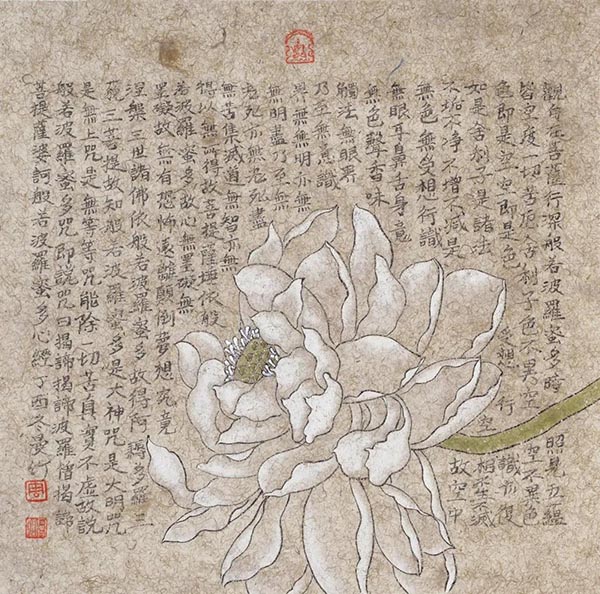 觀自在菩薩行深般若波羅蜜多時 照見五蘊
皆空度一切苦厄舍利子色不異空 空不異色
色即是空空即是色 受想 行 識亦復
如是舍利子是諸法 空 相不生不滅
不垢不净不增不減是 故空中
無色無受想行識
無眼耳鼻舌身意
無色聲香味
觸法無眼界
乃至無意識
界無無明亦無
無明盡乃至無
老死亦無老死盡
無苦集滅道無智亦無
得以無所得故菩提薩埵依般
若波羅蜜多故心無罣礙無
罣礙故無有恐怖遠離顛倒夢想究竟
涅槃三世諸佛依般若波羅蜜多故得阿耨多羅三
藐三菩提故知般若波羅蜜多是大神咒是大明咒
是無上咒是無等等咒能除一切苦真實不虛故說
般若波羅蜜多咒即說咒曰揭諦揭諦波羅僧揭諦
菩提薩婆訶般若波羅蜜多心經 丁酉冬